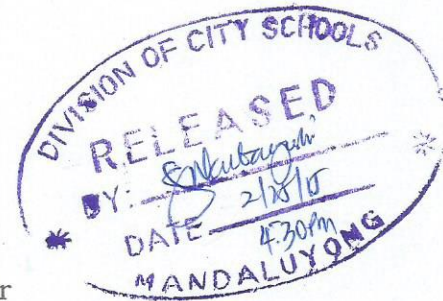 DIVISION OF CITY SCHOOLS
RELEASED
BY:
DATE 2/25/15
4:30pm
MANDALUYONG
r